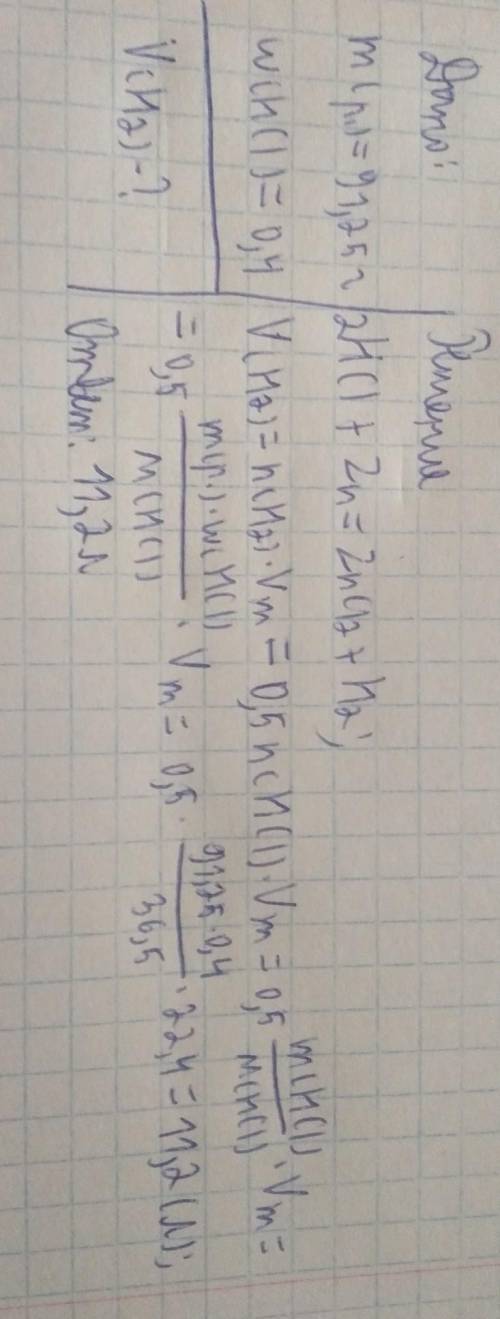 Дано:
m(р.) = 91,25 г
w(HCl) = 0,4
V(H2) - ?
Решение
2HCl + Zn = ZnCl2 + H2;
V(H2) = n(H2) · Vm = 0,5 n(HCl) · Vm = 0,5 m(HCl) / M(HCl) · Vm =
= 0,5 m(р.) · w(HCl) / M(HCl) · Vm = 0,5 · 91,25 · 0,4 / 36,5 · 22,4 = 11,2 (л);
Ответ: 11,2 л